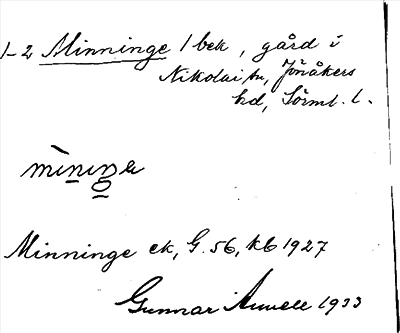 1-2 Minninge 1 bek, gård i
Nikolai sn, Jönåkers
hd, Sörml. l.
mìniŋe
Minninge ek, G. 56, kb 1927
Gunnar 1933